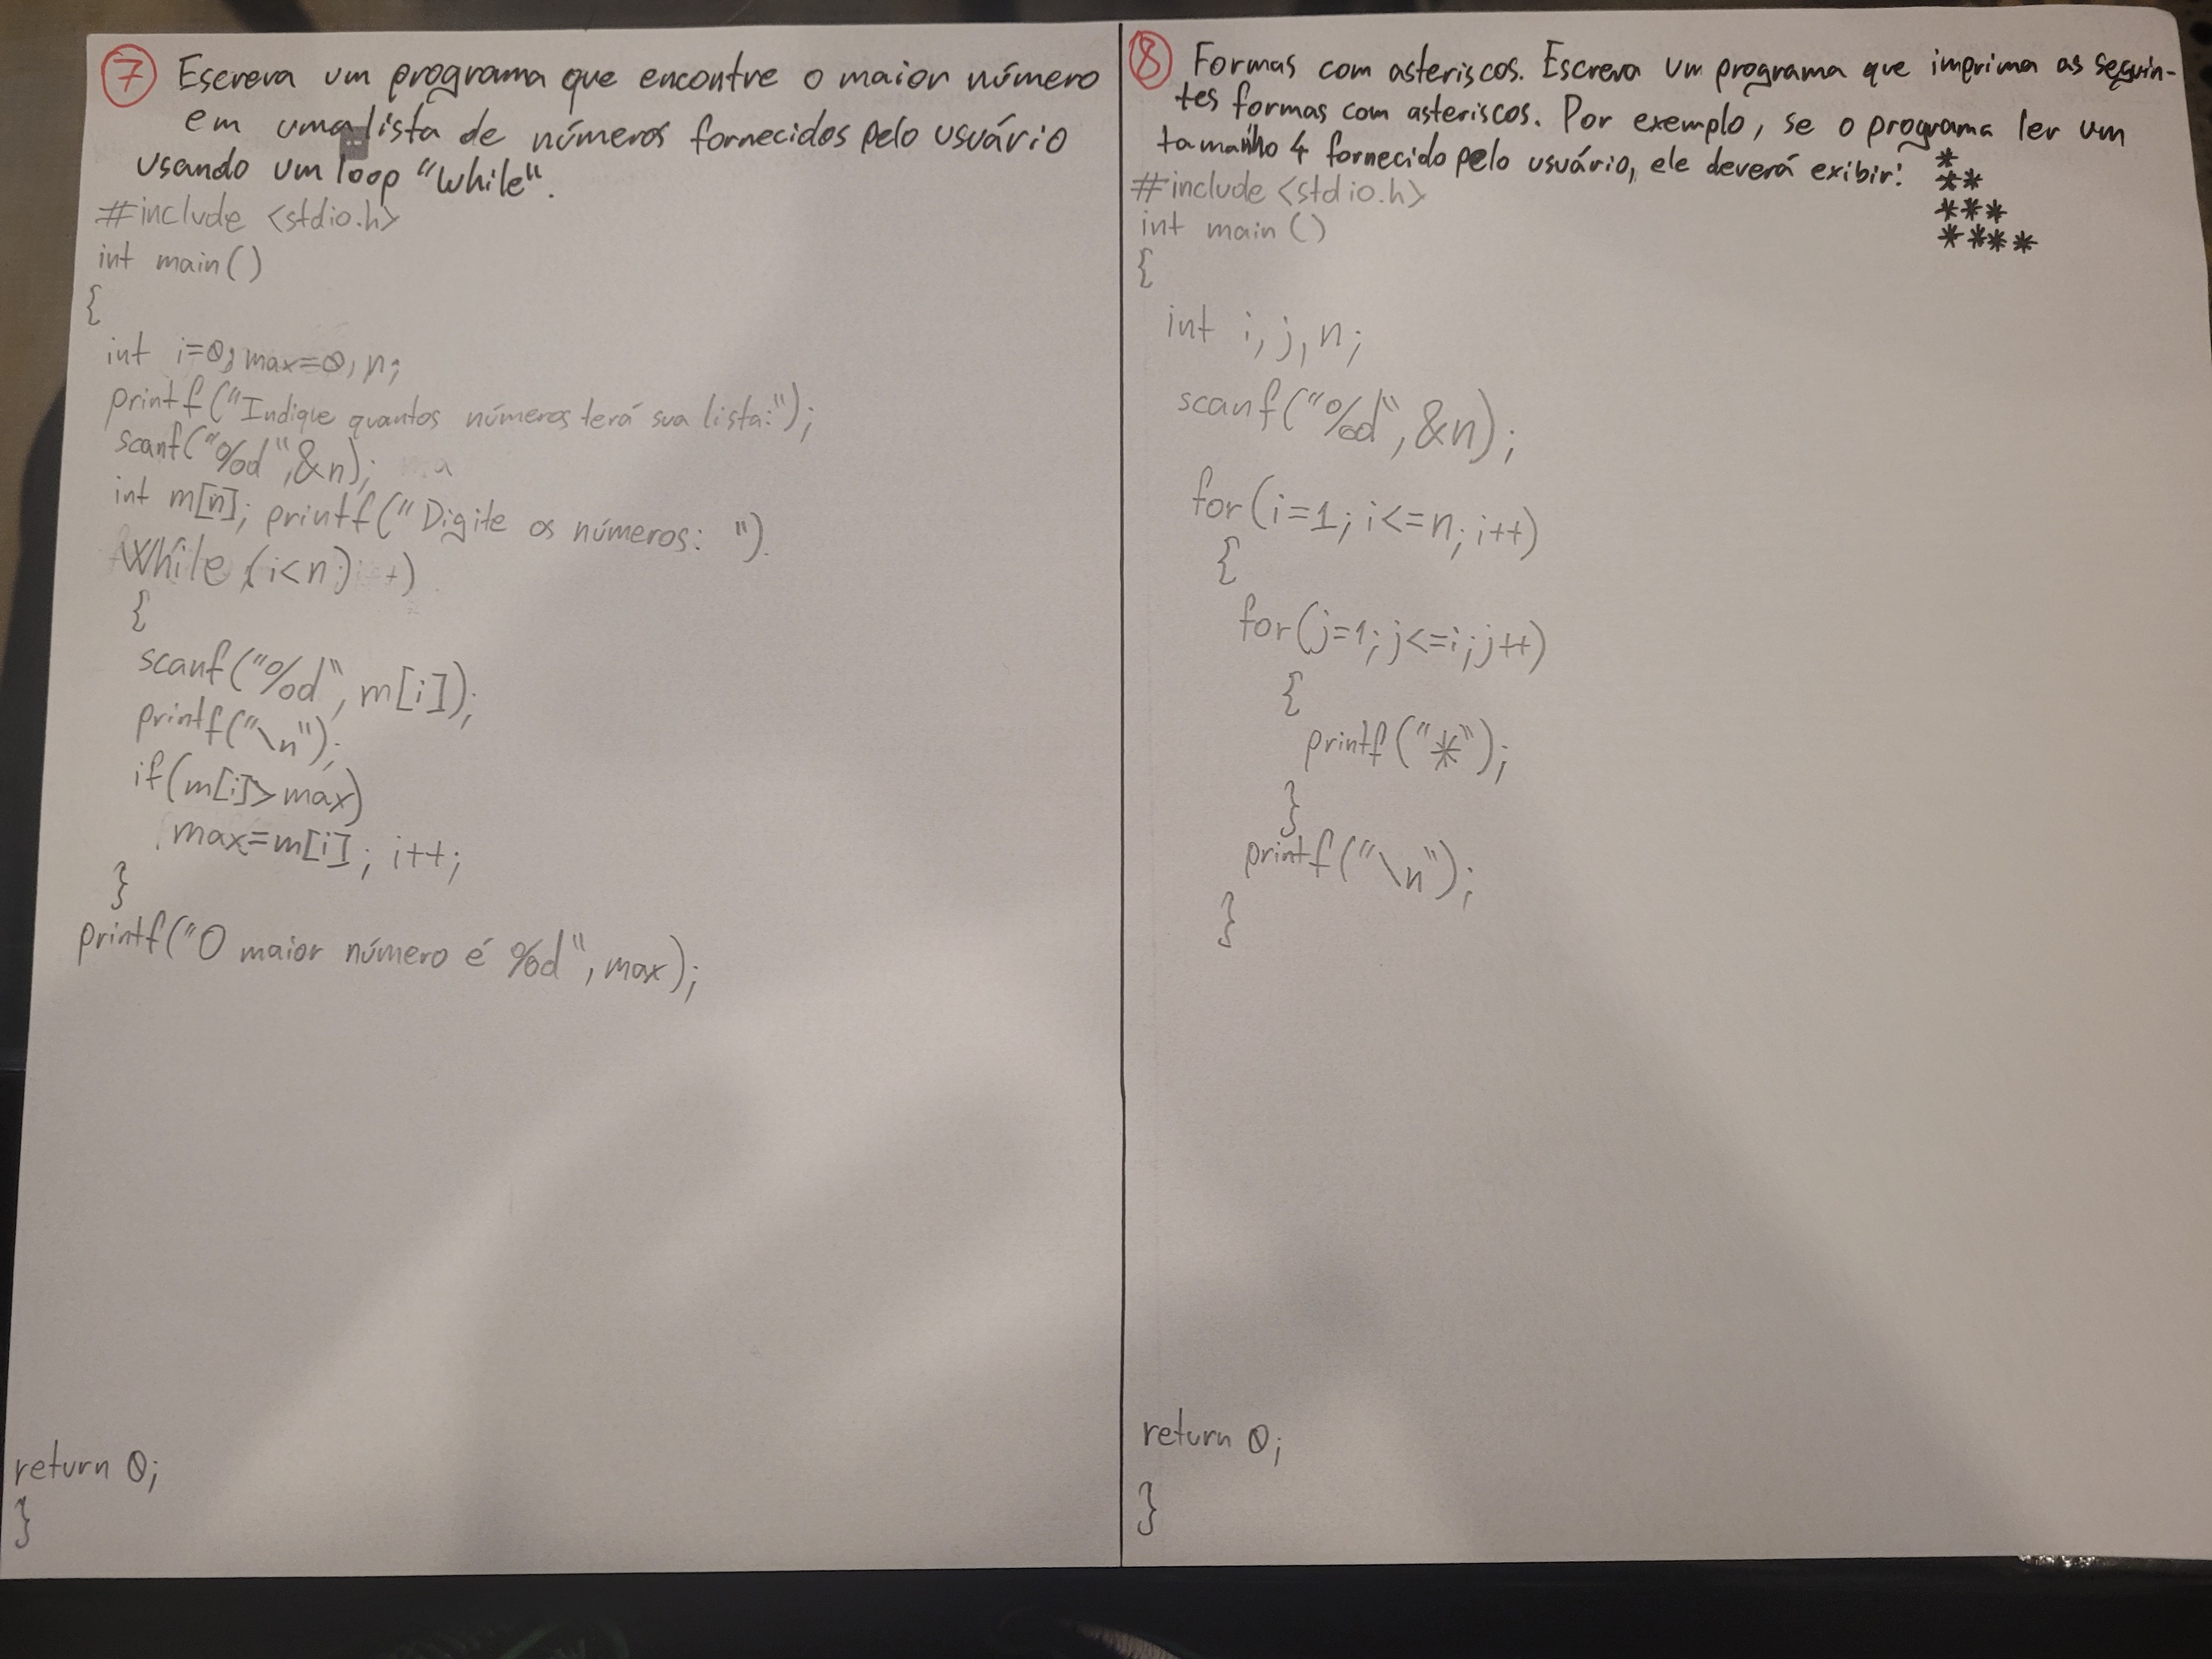 7 Escreva um programa que encontre o maior número
em uma lista de números fornecidos pelo usuário
usando um loop "While".
#include <stdio.h>
int main()
{
int i=0, max=0, n;
printf("Indique quantos números terá sua lista:");
scanf("%d",&n);
int m[n]; printf("Digite os números: ").
While (i<n)
{
scanf("%d", m[i]);
printf("\n");
if(m[i]>max)
max=m[i]; i++;
}
printf("O maior número é %d", max);
return 0;
}
8 Formas com asteriscos. Escreva um programa que imprima as seguin-
tes formas com asteriscos. Por exemplo, se o programa ler um
tamanho 4 fornecido pelo usuário, ele deverá exibir:
*
**
***
****
#include <stdio.h>
int main()
{
int i, j, n;
scanf("%d", &n);
for(i=1; i<=n; i++)
{
for(j=1; j<=i; j++)
{
printf("*");
}
printf("\n");
}
return 0;
}